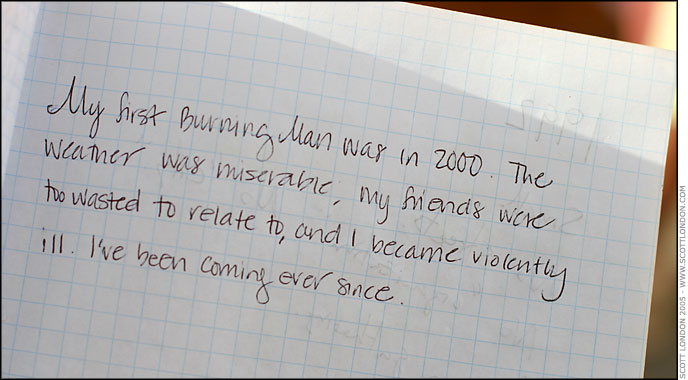 My first Burning Man was in 2000. The
weather was miserable, my friends were
too wasted to relate to, and I became violently
ill. I've been coming ever since.
SCOTT LONDON 2005 - WWW.SCOTTLONDON.COM